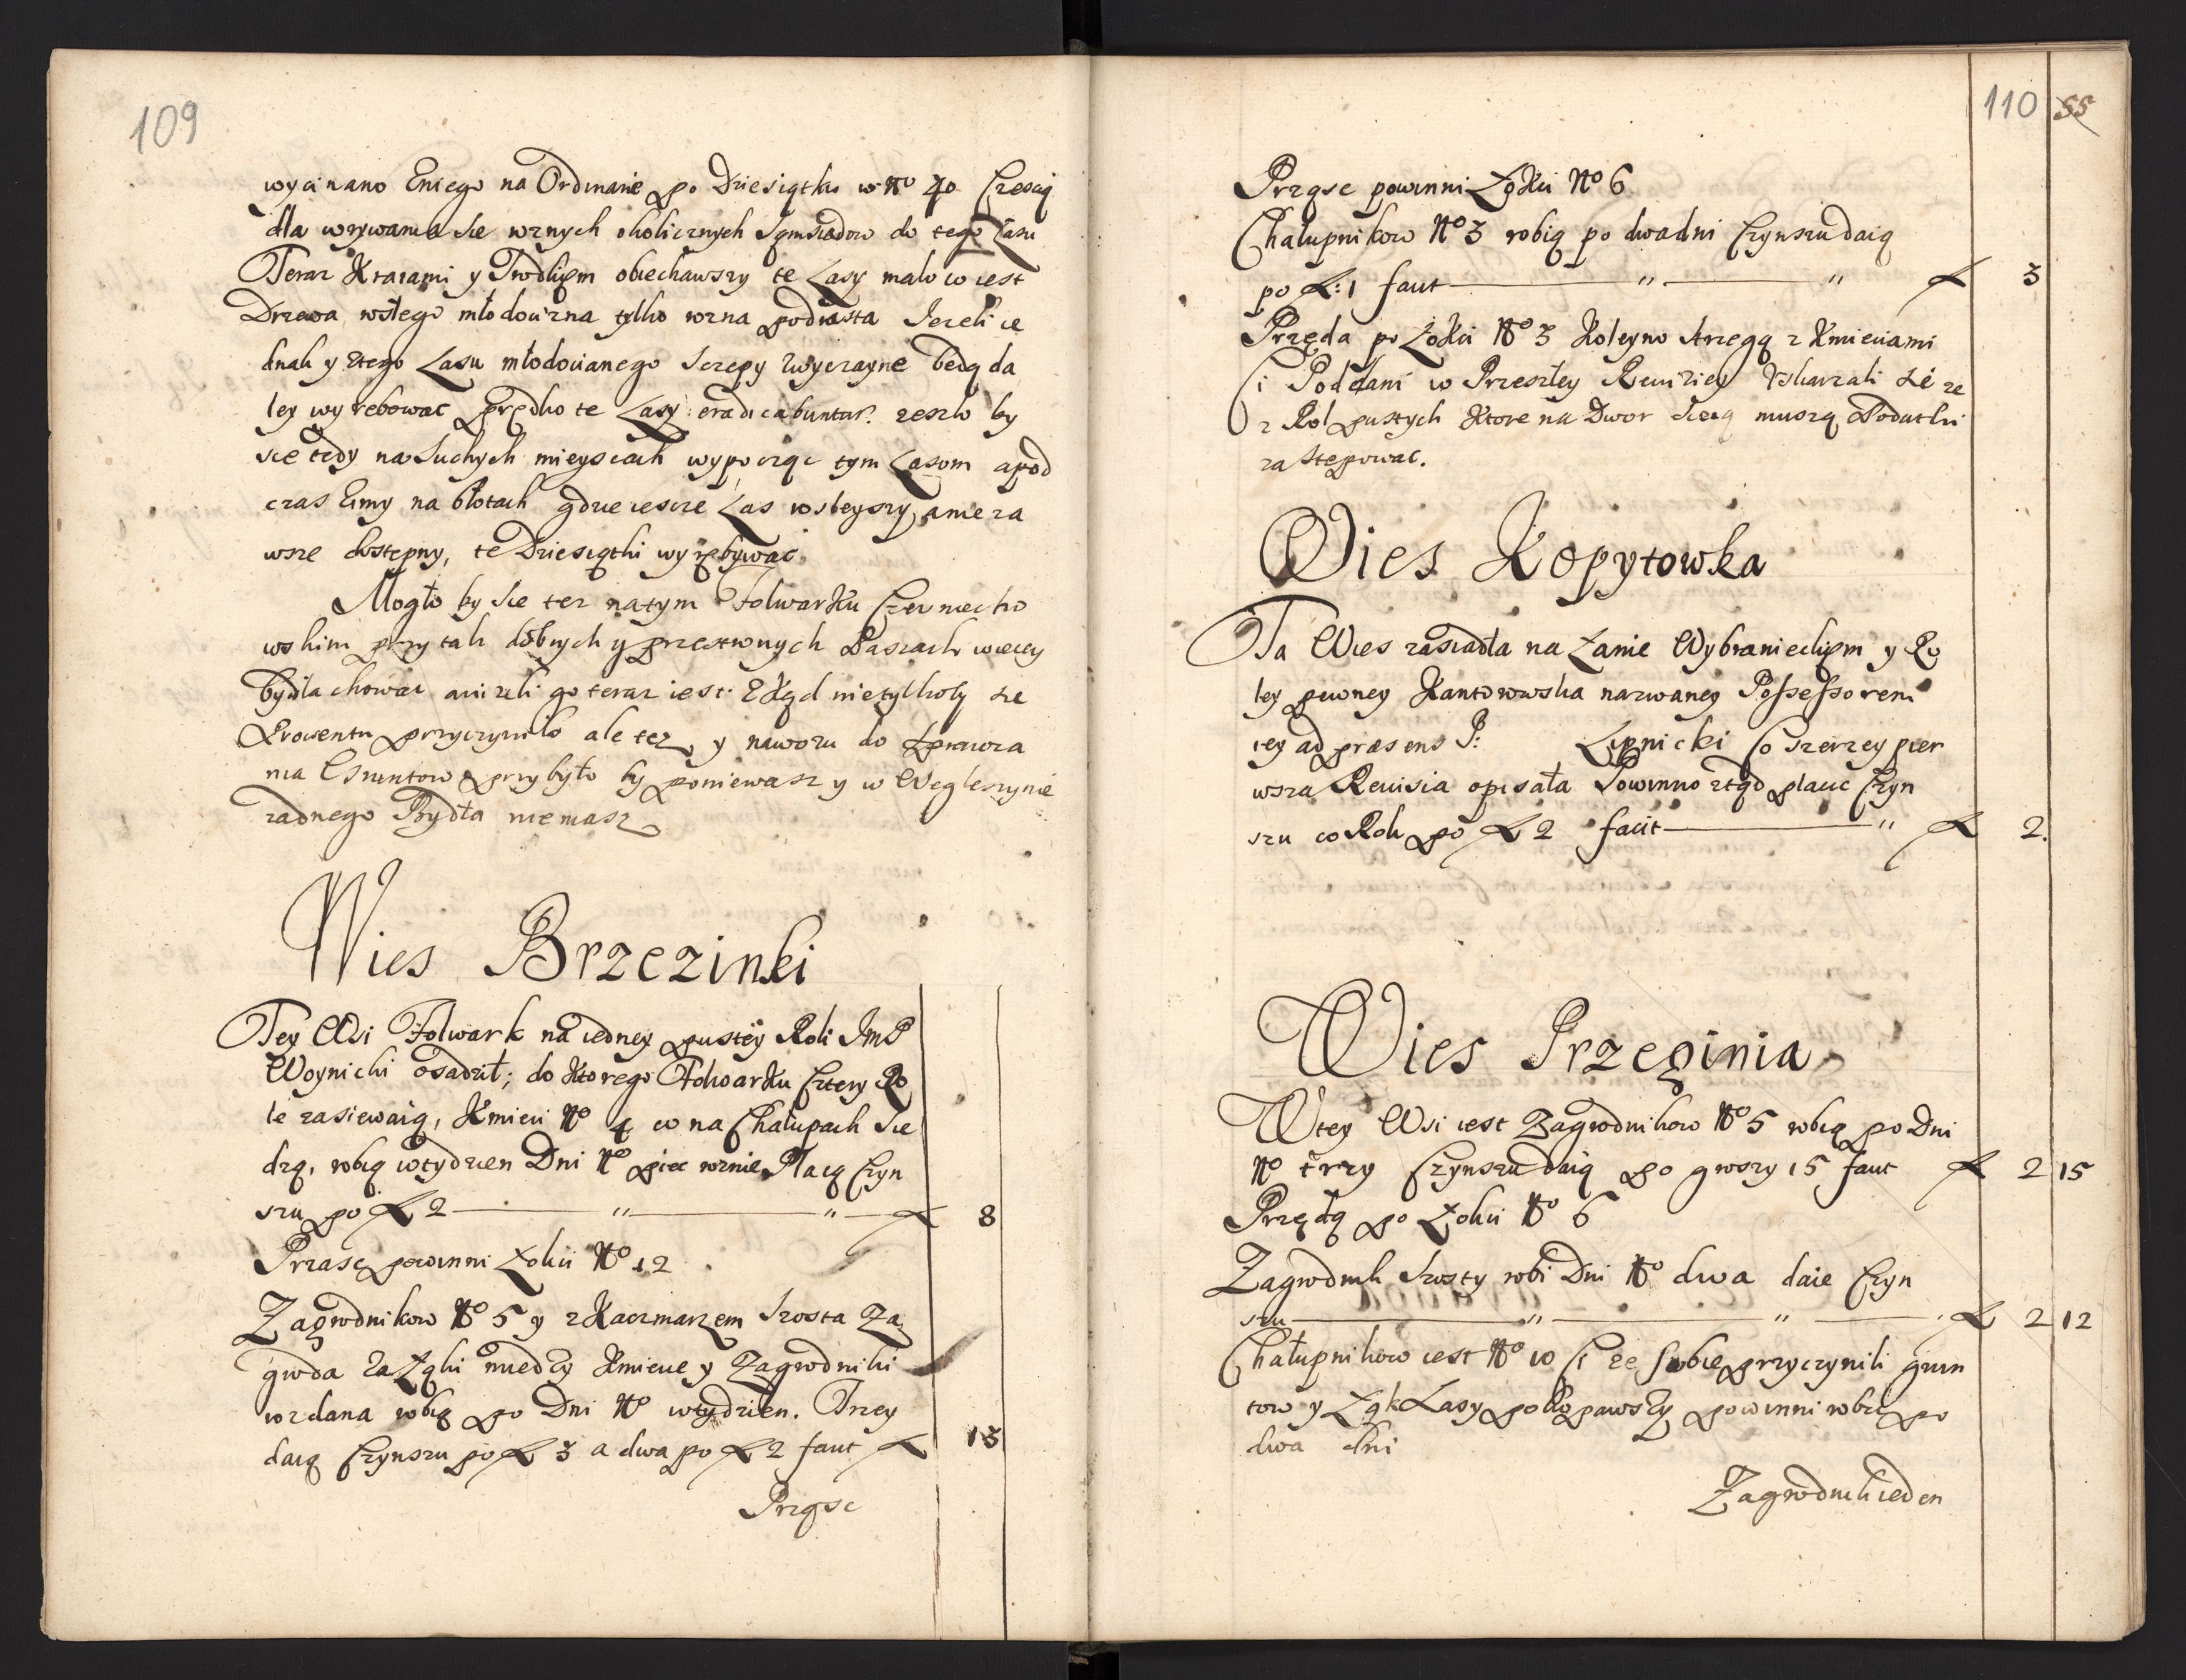 109
wycinano Zniego na Ordinarie po Dziesiątku w No 40 Czescią
dla wrywania sie roznych okolicznych Sąmsiadow do tego Lasu
Teraz Krazami y Trodlipm obiechawszy te Lasy malo co iest
Drzewa wstego młodocizna tylko rozna podrasta Jezeli ie
dnak y ztego Lasu młodocianego Sczepy zwyczayne będą da
ley wyrębować prędko te Lasy eradicabuntur. zeszło by
sie tedy na Suchych mieyscach wypocząc tym Lasom a pod
czas Zimy na błotach gdzie iescze Las wsteyszy, a nie za
wsze dostepny, te Dziesiątki wyrębywać.
Mogło by sie tez na tym Folwarku Czerniecho
wskim przy tak dobnych y przestronych Paszach wiecey
bydła chowac anizeli go teraz iest: Zkąd nie tylkoby sie
Prowentu przyczyniło ale tez y nawozu do sprawia
nia Gruntow przybyło by poniewasz y w Węgleszynie
zadnego Bydła niemasz
Wies Brzezinki
Tey Wsi Folwark na iedney pustey Roli JmP
Woynicki osadził; do ktorego Folwarku cztery Ro
le zasiewaią, Kmieci No 4 co na Chałupach sie
dzą, robią w tydzien Dni No piec roznie Płacą Czyn
szu po zł 2 — " — " — zł 8
Prząsc powinni Łokci No 12
Zagrodnikow No 5 y z Kaczmarzem Szosta Za
groda za Łąki miedzy Kmiecie y Zagrodniki
rozdana robią po Dni No w tydzien. Trzey
daią Czynszu po zł 3 a dwa po zł 2 facit zł 13
Prząsc
110 55
Prząsc powinni Łokci No 6
Chałupnikow No 3 robią po dwa dni Czynszu daią
po zł: 1 facit — " — " zł 3
Przęda po Łokci No 3 Koleyno strzegą z Kmieciami
Ci Poddani w Przeszłey Rewiziey Vskarzali sie ze
z Rol pustych ktore na Dwor sieią muszą Podatki
zastepowac.
Wies Kopytowka
Ta Wies zasiadła na Łanie Wybranieckipm y Ro
ley pewney Kantorowska nazwaney Possessorem
iey ad præsens P: Lipnicki Co szerzey pier
wsza Rewisia opisała Powinno ztąd płacic Czyn
szu co Rok po zł 2 facit — " zł 2.
Wies Przeginia
W tey Wsi iest Zagrodnikow No 5 robią po Dni
No trzy Czynszu daią po groszy 15 facit zł 2 15
Przędą po Łokci No 6
Zagrodnik Szosty robi Dni No dwa daie Czyn
szu — " — " — zł 2 12
Chałupnikow iest No 10 Ci ze sobie przyczynili grun
tow y Łąk Lasy pokopawszy powinni robic po
dwa dni
Zagrodnik ieden